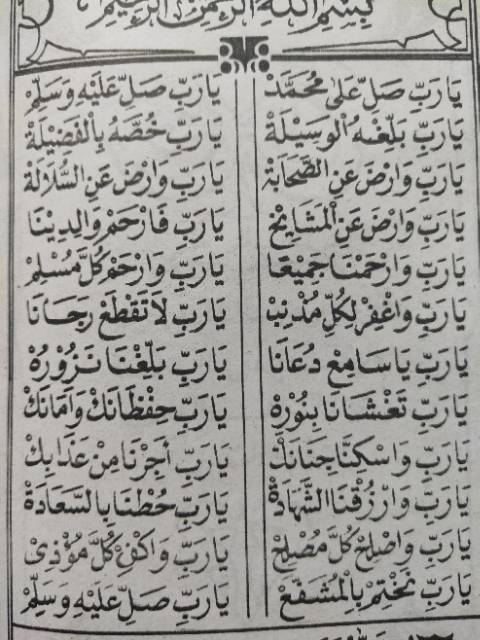 بِسْمِ اللهِ الرَّحْمٰنِ الرَّحِيْمِ
يَا رَبِّ صَلِّ عَلٰى مُحَمَّدْ يَا رَبِّ صَلِّ عَلَيْهِ وَسَلِّمْ
يَا رَبِّ بَلِّغْهُ الْوَسِيْلَةْ يَا رَبِّ خُصَّهُ بِالْفَضِيْلَةْ
يَا رَبِّ وَارْضَ عَنِ الصَّحَابَةْ يَا رَبِّ وَارْضَ عَنِ السُّلَالَةْ
يَا رَبِّ وَارْضَ عَنِ الْمَشَايِخْ يَا رَبِّ فَارْحَمْ وَالِدِيْنَا
يَا رَبِّ وَارْحَمْنَا جَمِيْعًا يَا رَبِّ وَارْحَمْ كُلَّ مُسْلِمْ
يَا رَبِّ وَاغْفِرْ لِكُلِّ مُذْنِبْ يَا رَبِّ لَا تَقْطَعْ رَجَانَا
يَا رَبِّ يَا سَامِعْ دُعَانَا يَا رَبِّ بَلِّغْنَا نَزُوْرُهْ
يَا رَبِّ تَغْشَانَا بِنُوْرِهْ يَا رَبِّ حِفْظَانَكْ وَامَانَكْ
يَا رَبِّ وَاسْكِنَّا جِنَانَكْ يَا رَبِّ اَجِرْنَا مِنْ عَذَابِكْ
يَا رَبِّ وَارْزُقْنَا الشَّهَادَةْ يَا رَبِّ حُطْنَا بِالسَّعَادَةْ
يَا رَبِّ وَاصْلِحْ كُلَّ مُصْلِحْ يَا رَبِّ وَاكْفِ كُلَّ مُؤْذِيْ
يَا رَبِّ نَخْتِمْ بِالْمُشَفَّعْ يَا رَبِّ صَلِّ عَلَيْهِ وَسَلِّمْ